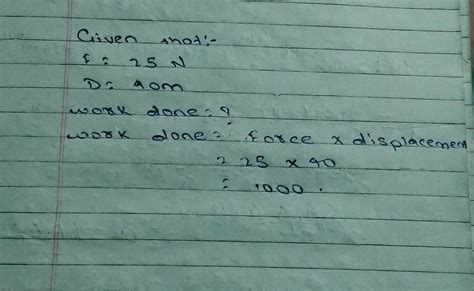 Given that:-
F = 25 N
D = 40m
work done = ?
work done = force x displacement
= 25 x 40
= 1000.